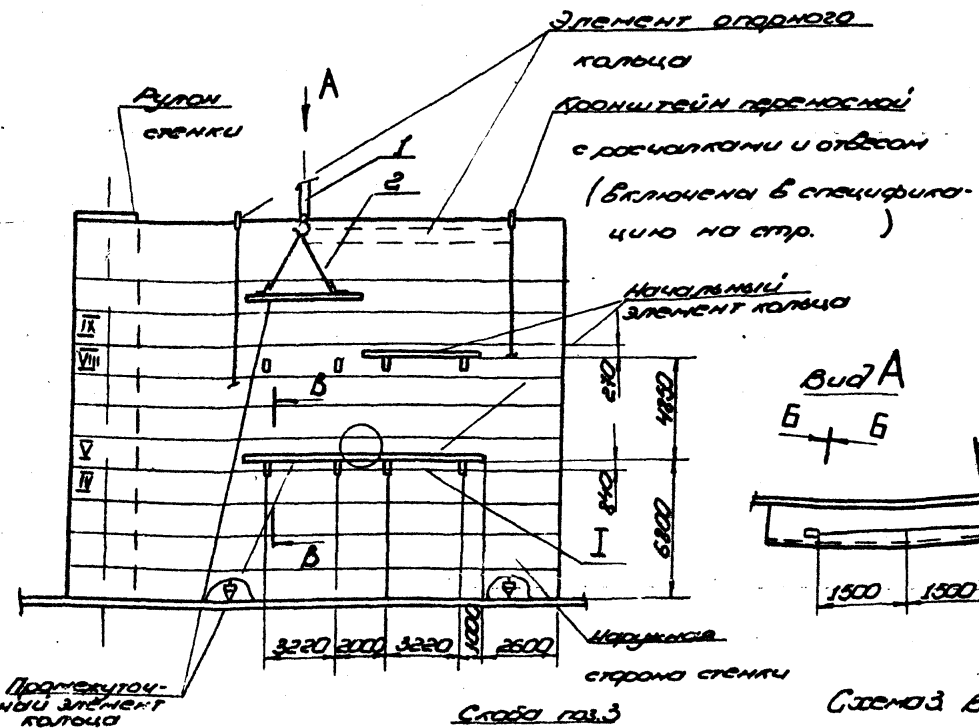 Элемент опорного
кольца
А
Рулон
стенки
Кронштейн переносной
с расчалками и отвесом
(включена в специфика-
цию на стр. )
1
2
Начальный
элемент кольца
IX
VIII
V
IV
В
В
270
4850
840
6800
I
Вид А
Б Б
1500 1500
3220 2000 3220 1000 2600
Наружная
сторона стенки
Промежуточ-
ный элемент
кольца
Скоба поз.3
Схема 3